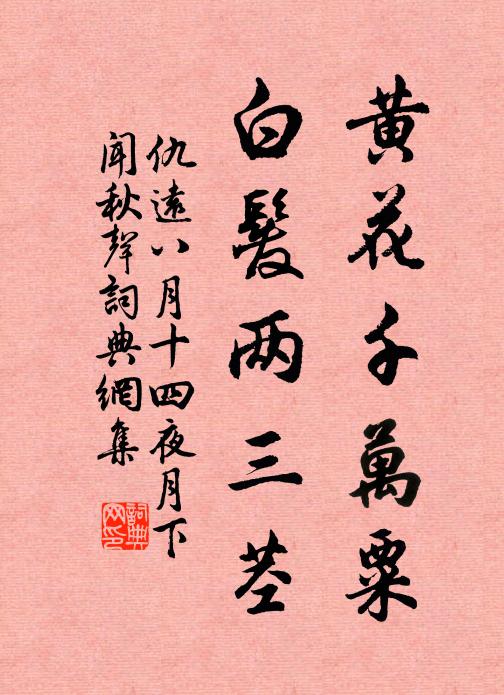 黄花千萬粟
白髮两三莖
仇遠八月十四夜月下
聞秋聲詞典網集
詞典
网印